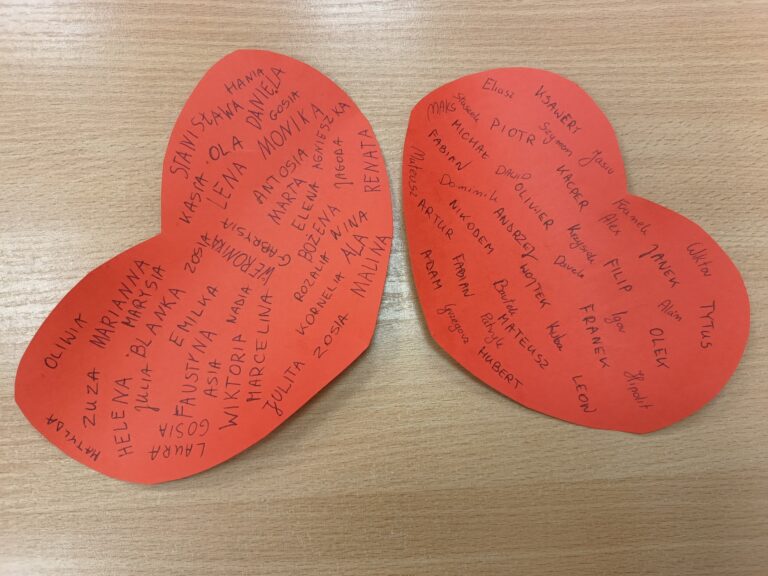 HANIA
STANISŁAWA
DANIELA
GOSIA
KASIA
OLA
LENA
MONIKA
ANTOSIA
AGNIESZKA
MARTA
JAGODA
RENATA
ELENA
GABRYSIA
BOŻENA
ZOSIA
WERONIKA
ROZALIA
NINA
KORNELIA
ALA
MALINA
OLIWIA
MARIANNA
MARYSIA
BLANKA
EMILKA
NADIA
ZUZA
JULIA
HELENA
FAUSTYNA
ASIA
WIKTORIA
MARCELINA
JULITA
ZOSIA
MATYLDA
LAURA
GOSIA
Eliasz
KSAWERY
MAKS
MICHAŁ
PIOTR
Szymon
Jasiu
FABIAN
DAWID
KACPER
Mateusz
Dominik
OLIVIER
Franek
Alex
ARTUR
NIKODEM
ANDRZEJ
JANEK
Wiktor
WOJTEK
FILIP
TYTUS
ADAM
FABIAN
Igor
OLEK
Kuba
FRANEK
Grzegorz
Patryk
MATEUSZ
HUBERT
LEON
Hipolit